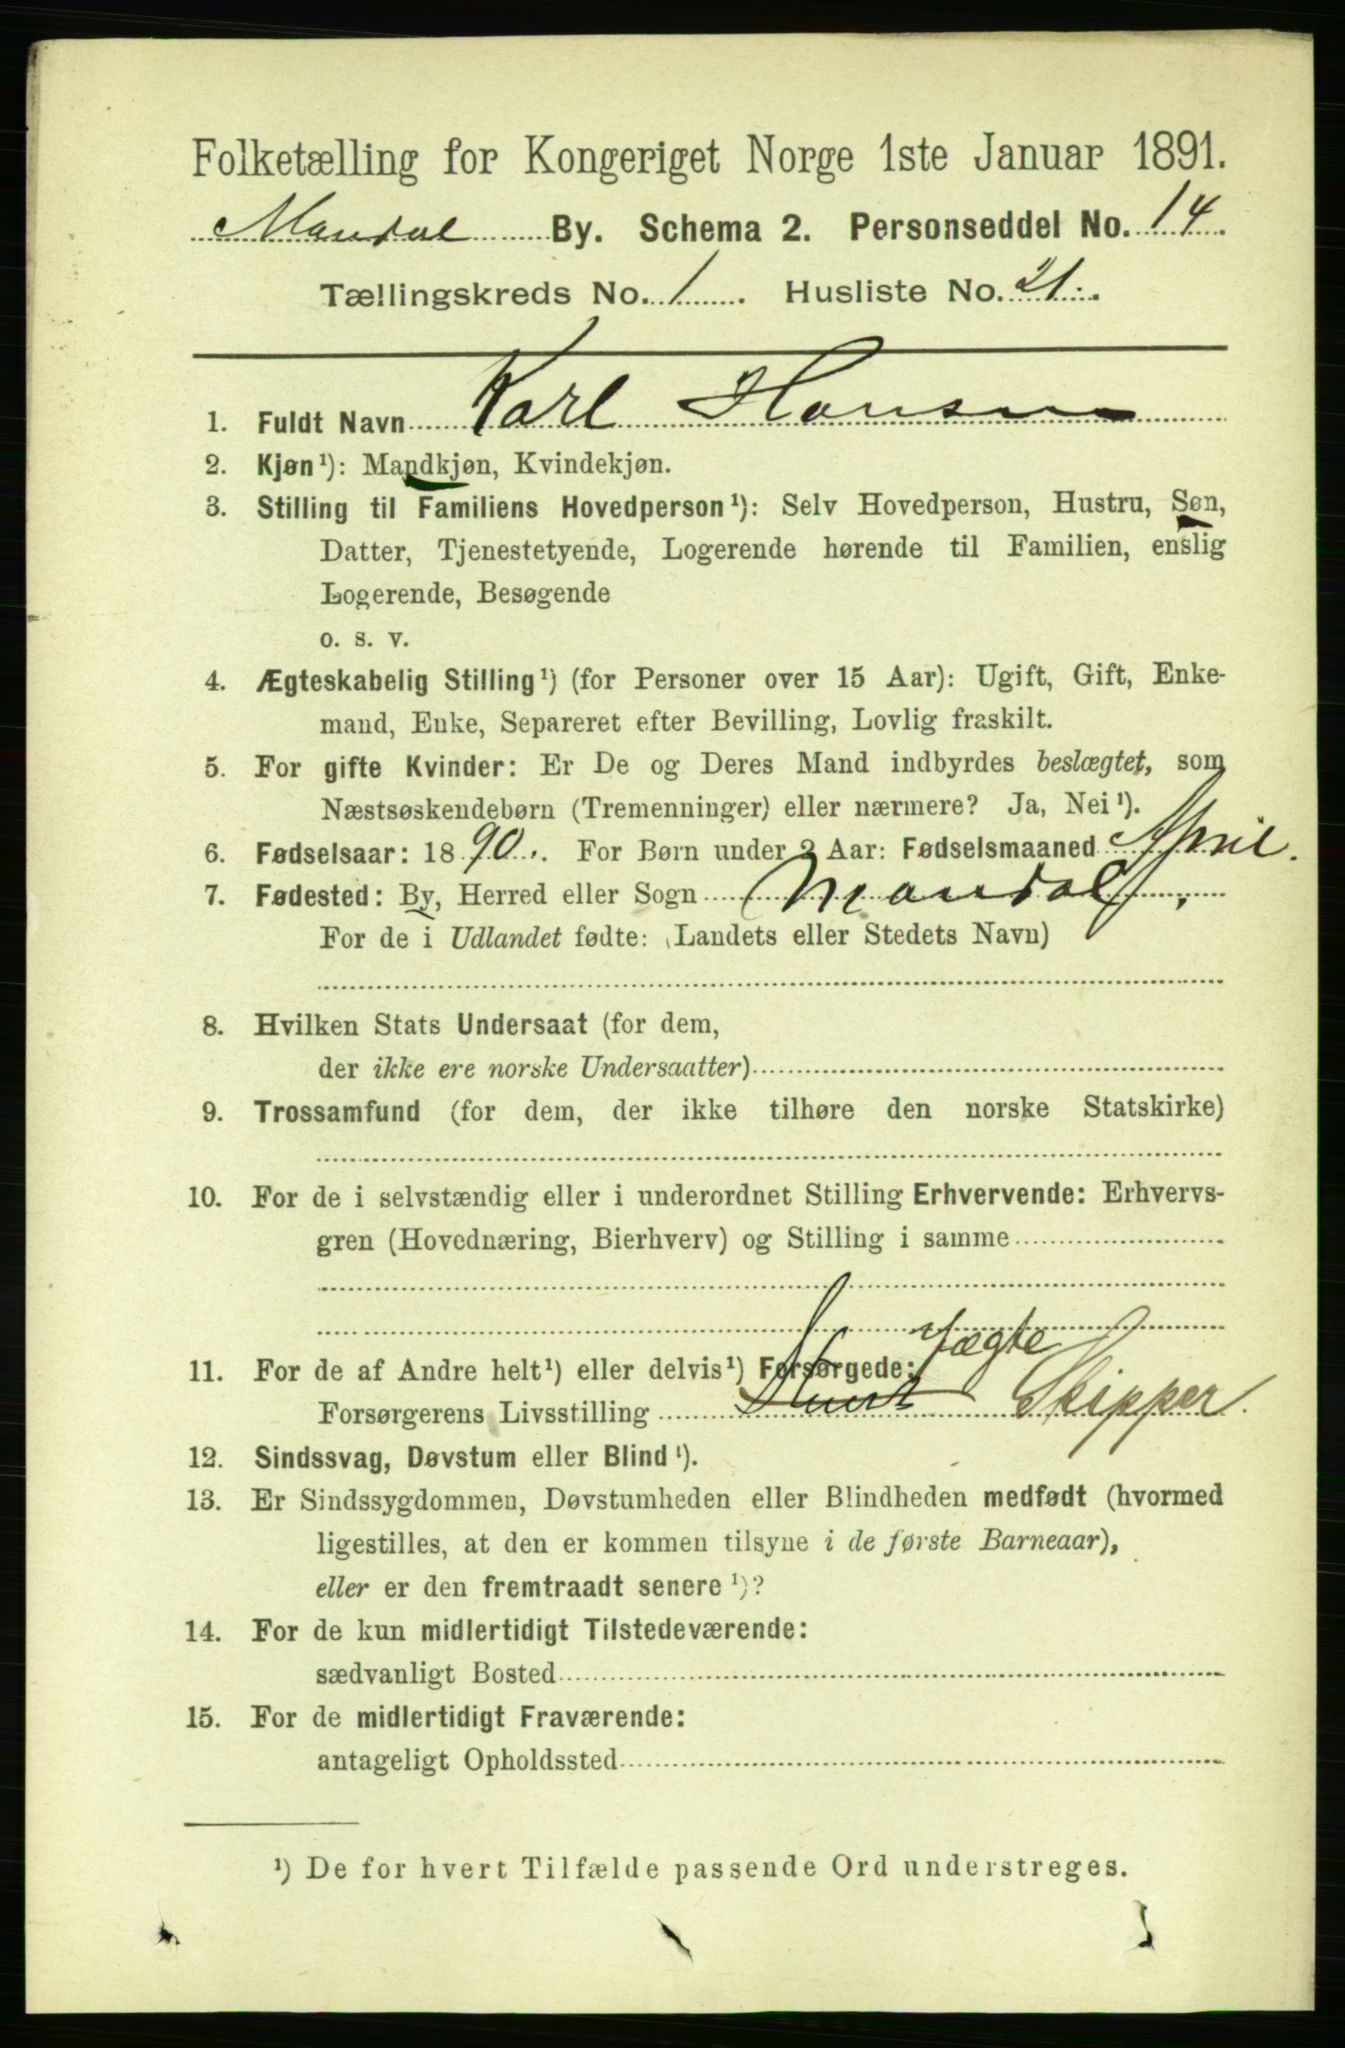 Folketælling for Kongeriget Norge 1ste Januar 1891.
Mandal By. Schema 2. Personseddel No. 14.
Tællingskreds No. 1. Husliste No. 21.
1. Fuldt Navn Karl Hansen
2. Kjøn¹): Mandkjøn, Kvindekjøn.
3. Stilling til Familiens Hovedperson¹): Selv Hovedperson, Hustru, Søn,
Datter, Tjenestetyende, Logerende hørende til Familien, enslig
Logerende, Besøgende
o. s. v.
4. Ægteskabelig Stilling¹) (for Personer over 15 Aar): Ugift, Gift, Enke-
mand, Enke, Separeret efter Bevilling, Lovlig fraskilt.
5. For gifte Kvinder: Er De og Deres Mand indbyrdes beslægtet, som
Næstsøskendebørn (Tremenninger) eller nærmere? Ja, Nei¹).
6. Fødselsaar: 1890. For Børn under 2 Aar: Fødselsmaaned April.
7. Fødested: By, Herred eller Sogn Mandal.
For de i Udlandet fødte: (Landets eller Stedets Navn)
8. Hvilken Stats Undersaat (for dem,
der ikke ere norske Undersaatter)
9. Trossamfund (for dem, der ikke tilhøre den norske Statskirke)
10. For de i selvstændig eller i underordnet Stilling Erhvervende: Erhvervs-
gren (Hovednæring, Bierhverv) og Stilling i samme
11. For de af Andre helt¹) eller delvis¹) Forsørgede: Jægte
Forsørgerens Livsstilling Skipper.
12. Sindssvag, Døvstum eller Blind¹).
13. Er Sindssygdommen, Døvstumheden eller Blindheden medfødt (hvormed
ligestilles, at den er kommen tilsyne i de første Barneaar),
eller er den fremtraadt senere¹)?
14. For de kun midlertidigt Tilstedeværende:
sædvanligt Bosted
15. For de midlertidigt Fraværende:
antageligt Opholdssted
¹) De for hvert Tilfælde passende Ord understreges.